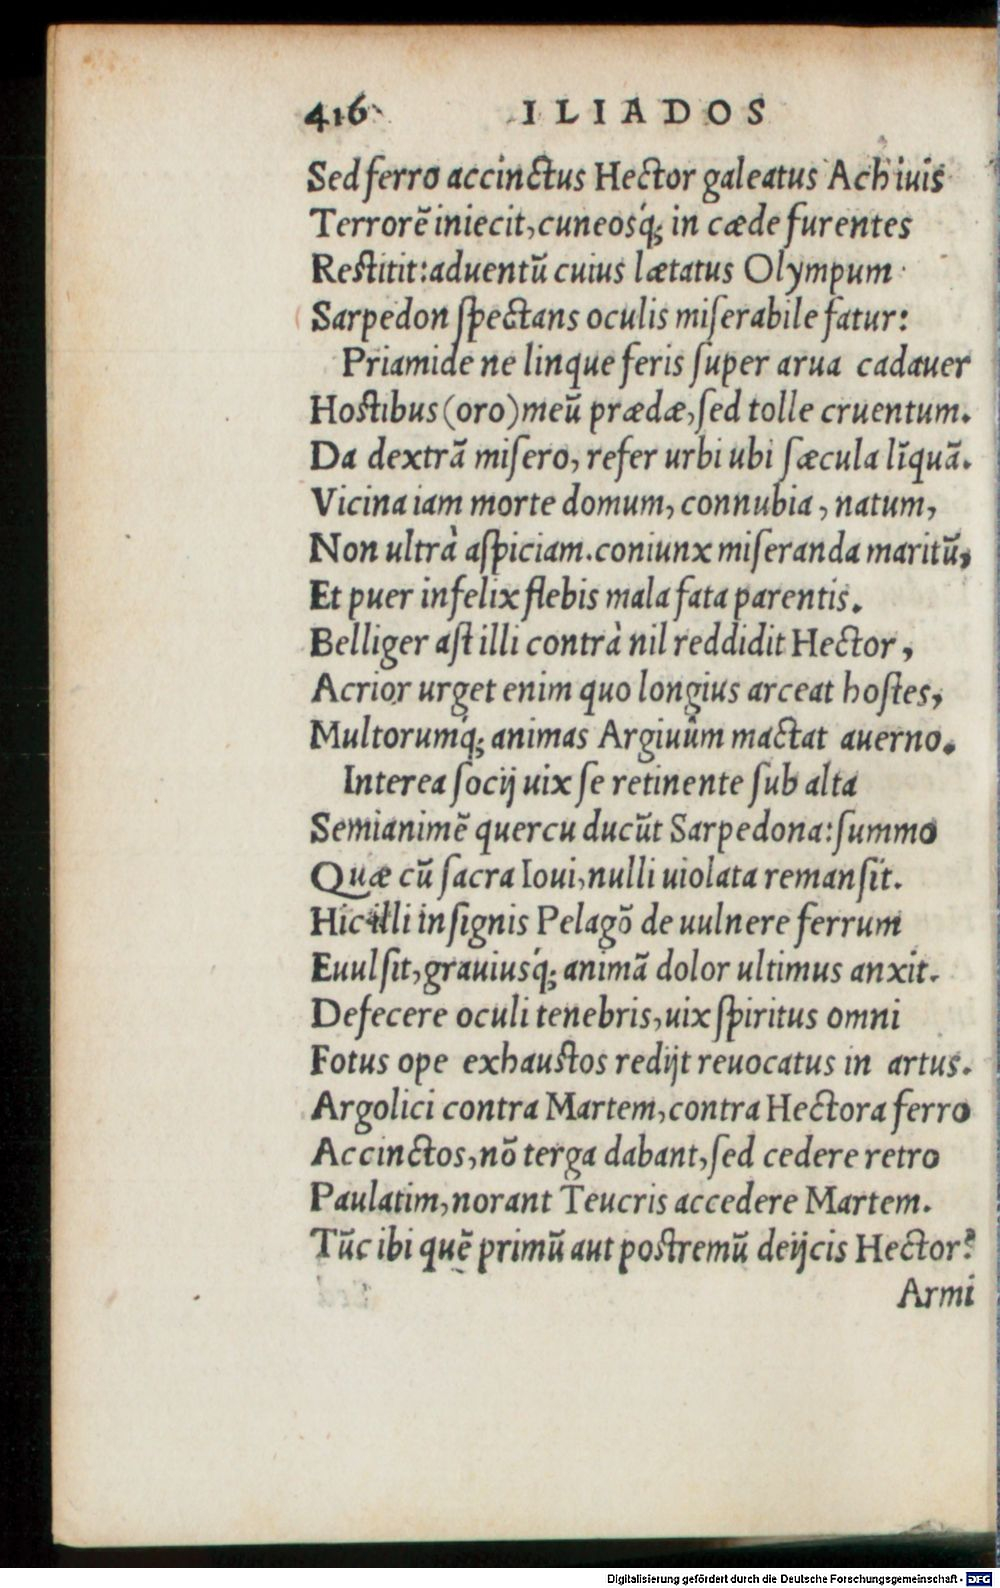 416 ILIADOS
Sed ferro accinctus Hector galeatus Achiuis
Terrorẽ iniecit, cuneosq́; in cæde furentes
Restitit: aduentũ cuius lætatus Olympum
Sarpedon spectans oculis miserabile fatur:
Priamide ne linque feris super arua cadauer
Hostibus (oro) meũ prædæ, sed tolle cruentum.
Da dextrã misero, refer urbi ubi sæcula lĩquã.
Vicina iam morte domum, connubia, natum,
Non ultrà aspiciam. coniunx miseranda maritũ,
Et puer infelix flebis mala fata parentis.
Belliger ast illi contrà nil reddidit Hector,
Acrior urget enim quo longius arceat hostes,
Multorumq́; animas Argiuûm mactat auerno.
Interea socij uix se retinente sub alta
Semianimẽ quercu ducũt Sarpedona: summo
Quæ cũ sacra Ioui, nulli uiolata remansit.
Hic illi insignis Pelagõ de uulnere ferrum
Euulsit, grauiusq́; animã dolor ultimus anxit.
Defecere oculi tenebris, uix spiritus omni
Fotus ope exhaustos redijt reuocatus in artus.
Argolici contra Martem, contra Hectora ferro
Accinctos, nõ terga dabant, sed cedere retro
Paulatim, norant Teucris accedere Martem.
Tũc ibi quẽ primũ aut postremũ deijcis Hector?
Armi
Digitalisierung gefördert durch die Deutsche Forschungsgemeinschaft - DFG